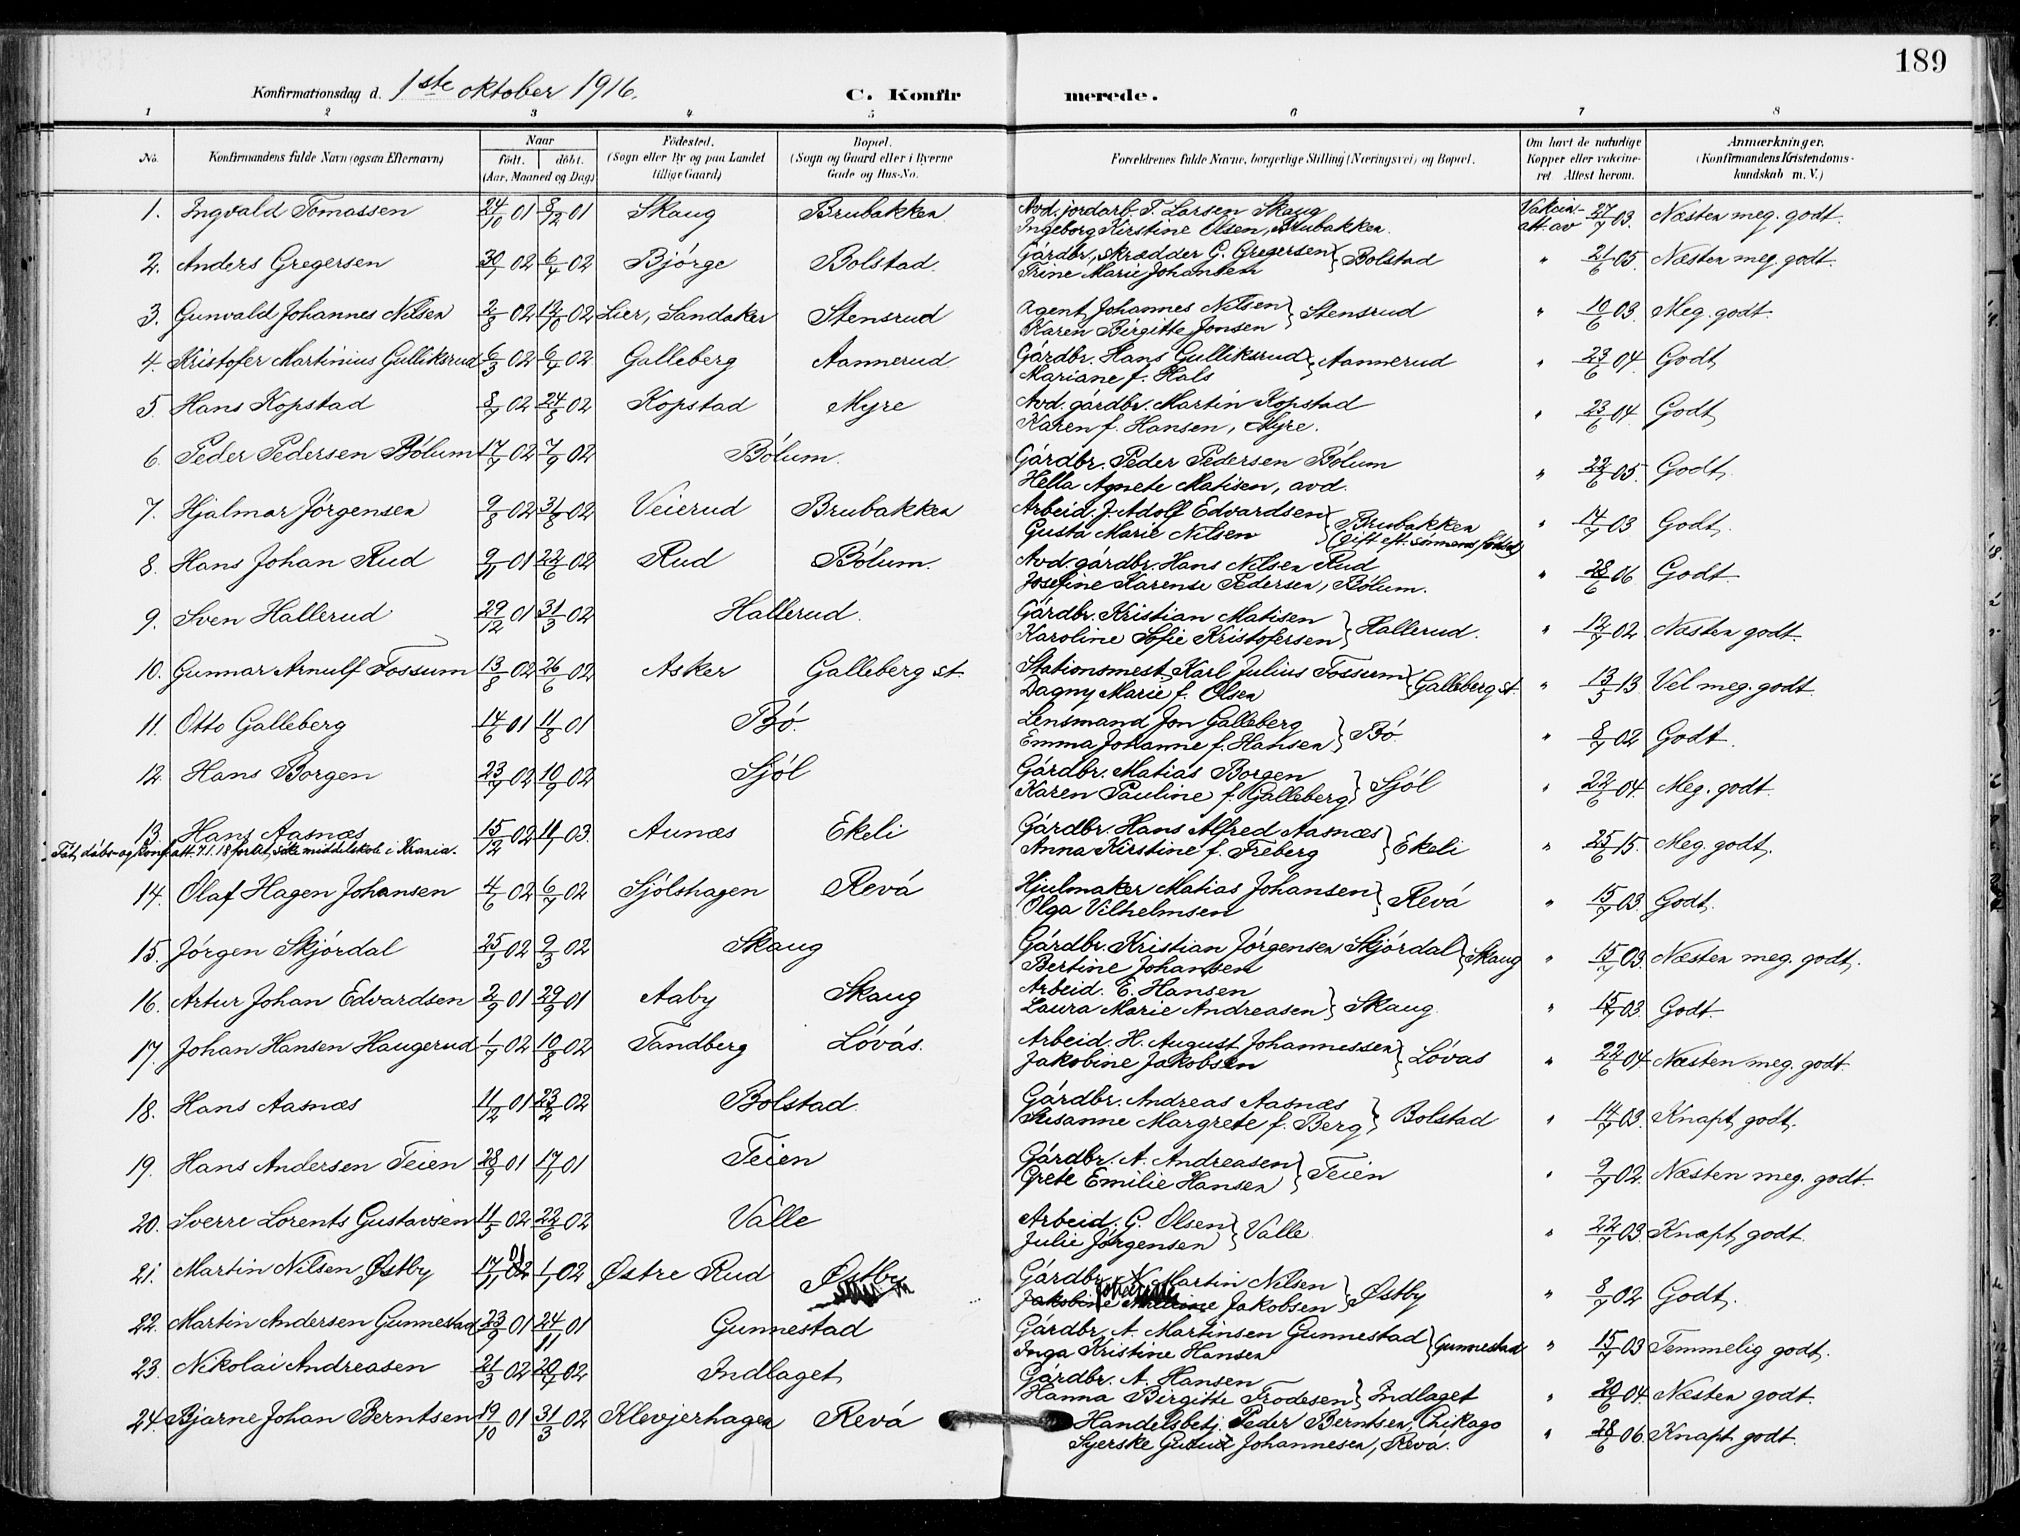 189
Konfirmationsdag d. 1ste oktober 1916. C. Konfirmerede.
1 2 3 4 5 6 7 8
No. Konfirmandens fulde Navn (ogsaa Efternavn) Naar født. døbt. (Aar, Maaned og Dag) Fødested. (Sogn eller By og paa Landet tillige Gaard) Bopæl. (Sogn og Gaard eller i Byerne Gade og Hus-No. Forældrenes fulde Navne, borgerlige Stilling (Næringsvei) og Bopæl. Om havt de naturlige Kopper eller vakcineret Attest herom. Anmærkninger. (Konfirmandens Kristendomskundskab m. V.)
1. Ingvald Tomassen 24/10 01 8/12 01 Skaug Brubakken Avd. jordarb. T. Larsen Skaug Vakcin- 27/7 03. Næsten meg. godt.
Ingeborg Kirstine Olsen, Brubakken. att. av
2. Anders Gregersen 30/1 02 6/4 02 Bjørge Bolstad. Gårdbr., skrædder G. Gregersen } Bolstad " 21/6 05. Næsten meg. godt.
Trine Marie Johansen
3. Gunvald Johannes Nilsen 2/8 02 12/10 02 Lier, Sandaker Stensrud Agent Johannes Nilsen } Stensrud " 10/6 03. Meg. godt.
Karen Birgitte Jonsen
4. Kristofer Martinius Gulliksrud 6/3 02 6/4 02 Galleberg Aannerud Gårdbr. Hans Gulliksrud } Aannerud " 23/6 04. Godt
Mariane f. Hals
5. Hans Kopstad 8/7 02 24/8 02 Kopstad Myre Avd. gårdbr. Martin Kopstad " 23/6 04. Godt
Karen f. Hansen, Myre.
6. Peder Pedersen Bólum 17/7 02 7/9 02 Bólum. Gårdbr. Peder Pedersen Bólum " 22/6 05. Godt.
Hella Agnete Matisen, avd.
7. Hjalmar Jørgensen 9/8 02 31/8 02 Veierud Brubakken Arbeid. J. Adolf Edvardsen } Brubakken " 14/7 03 Godt.
Gusta Marie Nilsen (Gift eft. sønnens fødsel)
8. Hans Johan Rud 9/11 01 22/6 02 Rud Bólum. Avd. gårdbr. Hans Nilsen Rud " 28/6 06 Godt
Josefine Karense Pedersen, Bólum.
9. Sven Hallerud 29/12 01 31/3 02 Hallerud. Gårdbr. Kristian Matisen } Hallerud. " 12/7 02 Næsten godt.
Karoline Sofie Kristofersen
10. Gunnar Arnulf Fossum 13/8 02 26/6 02 Asker Galleberg st. Stationsmest. Karl Julius Fossum } Galleberg st. " 13/5 13 Vel meg. godt.
Dagny Marie f. Olsen
11. Otto Galleberg 14/6 01 11/8 01 Bó. Lensmand Jon Galleberg } Bó. " 8/7 02 Godt.
Emma Johanne f. Hansen
12. Hans Borgen 23/7 02 10/9 02 Sjól Gårdbr. Matias Borgen } Sjól " 22/6 04. Meg. godt.
Karen Pauline f. Galleberg
13. Hans Aasnæs 15/12 02 1/1 03. Aunæs Ekeli Gårdbr. Hans Alfred Aasnæs } Ekeli " 25/6 15. Meg. godt.
Fåt dåbs- og konf. att. 7.1.18 for at søke middelskole i Krania. Anna Kirstine f. Freberg
14. Olaf Hagen Johansen 4/6 02 6/7 02 Sjólshagen Revá Hjulmaker Matias Johansen } Revá " 15/7 03. Godt.
Olga Vilhelmsen
15. Jórgen Skjórdal 25/1 02 9/3 02 Skaug Gårdbr. Kristian Jórgensen Skjórdal } Skaug " 15/7 03. Næsten meg. godt.
Bertine Johansen
16. Artur Johan Edvardsen 2/9 01 29/9 01 Aaby Skaug Arbeid. E. Hansen } Skaug " 15/7 03. Godt.
Laura Marie Andreasen
17. Johan Hansen Haugerud 1/7 02 10/8 02 Tandberg Lóvás. Arbeid. H. August Johannessen } Lóvas " 22/6 04. Næsten meg. godt.
Jakobine Jakobsen
18. Hans Aasnæs 11/12 01 23/2 02 Bolstad. Gårdbr. Andreas Aasnæs } Bolstad " 14/7 03. Knapt godt.
Susanne Margrete f. Berg
19. Hans Andersen Teien 28/9 01 17/11 01 Teien Gårdbr. A. Andreasen } Teien " 9/7 02. Næsten meg. godt.
Grete Emilie Hansen
20. Sverre Lorents Gustavsen 11/5 02 22/6 02 Valle Arbeid. G. Olsen } Valle. " 22/7 03. Knapt godt.
Julie Jørgensen
21. Martin Nilsen Østby 17/11 01 1/1 02 Østre Rud Østby Gårdbr. N. Martin Nilsen } Østby " 8/7 02 Godt.
Jakobsen
22. Martin Andersen Gunnestad 23/9 01 24/11 01 Gunnestad Gårdbr. A. Martinsen Gunnestad } Gunnestad " 15/7 03 Temmelig godt.
Inga Kristine Hansen
23. Nikolai Andreasen 21/3 02 20/7 02 Indlaget Gårdbr. A. Hansen } Indlaget " 20/6 04. Næsten godt.
Hanna Birgitte Frodesen
24. Bjarne Johan Berntsen 19/10 01 31/3 02 Klevjerhagen Revá Handelsbetj. Peder Berntsen, Chikago " 28/6 06. Knapt godt.
Syerske Johannesen, Revá.